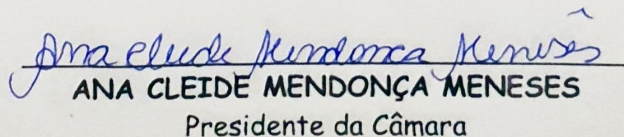 Ana Cleide Mendonça Meneses
ANA CLEIDE MENDONÇA MENESES
Presidente da Câmara